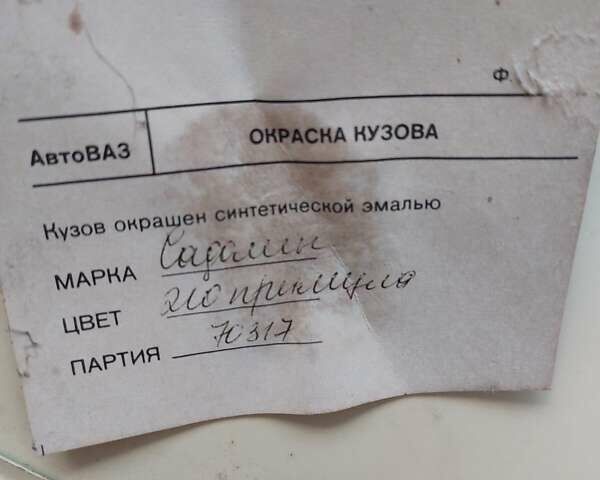 Ф.
АвтоВАЗ
ОКРАСКА КУЗОВА
Кузов окрашен синтетической эмалью
МАРКА Садолин
ЦВЕТ 210 примула
ПАРТИЯ 70317